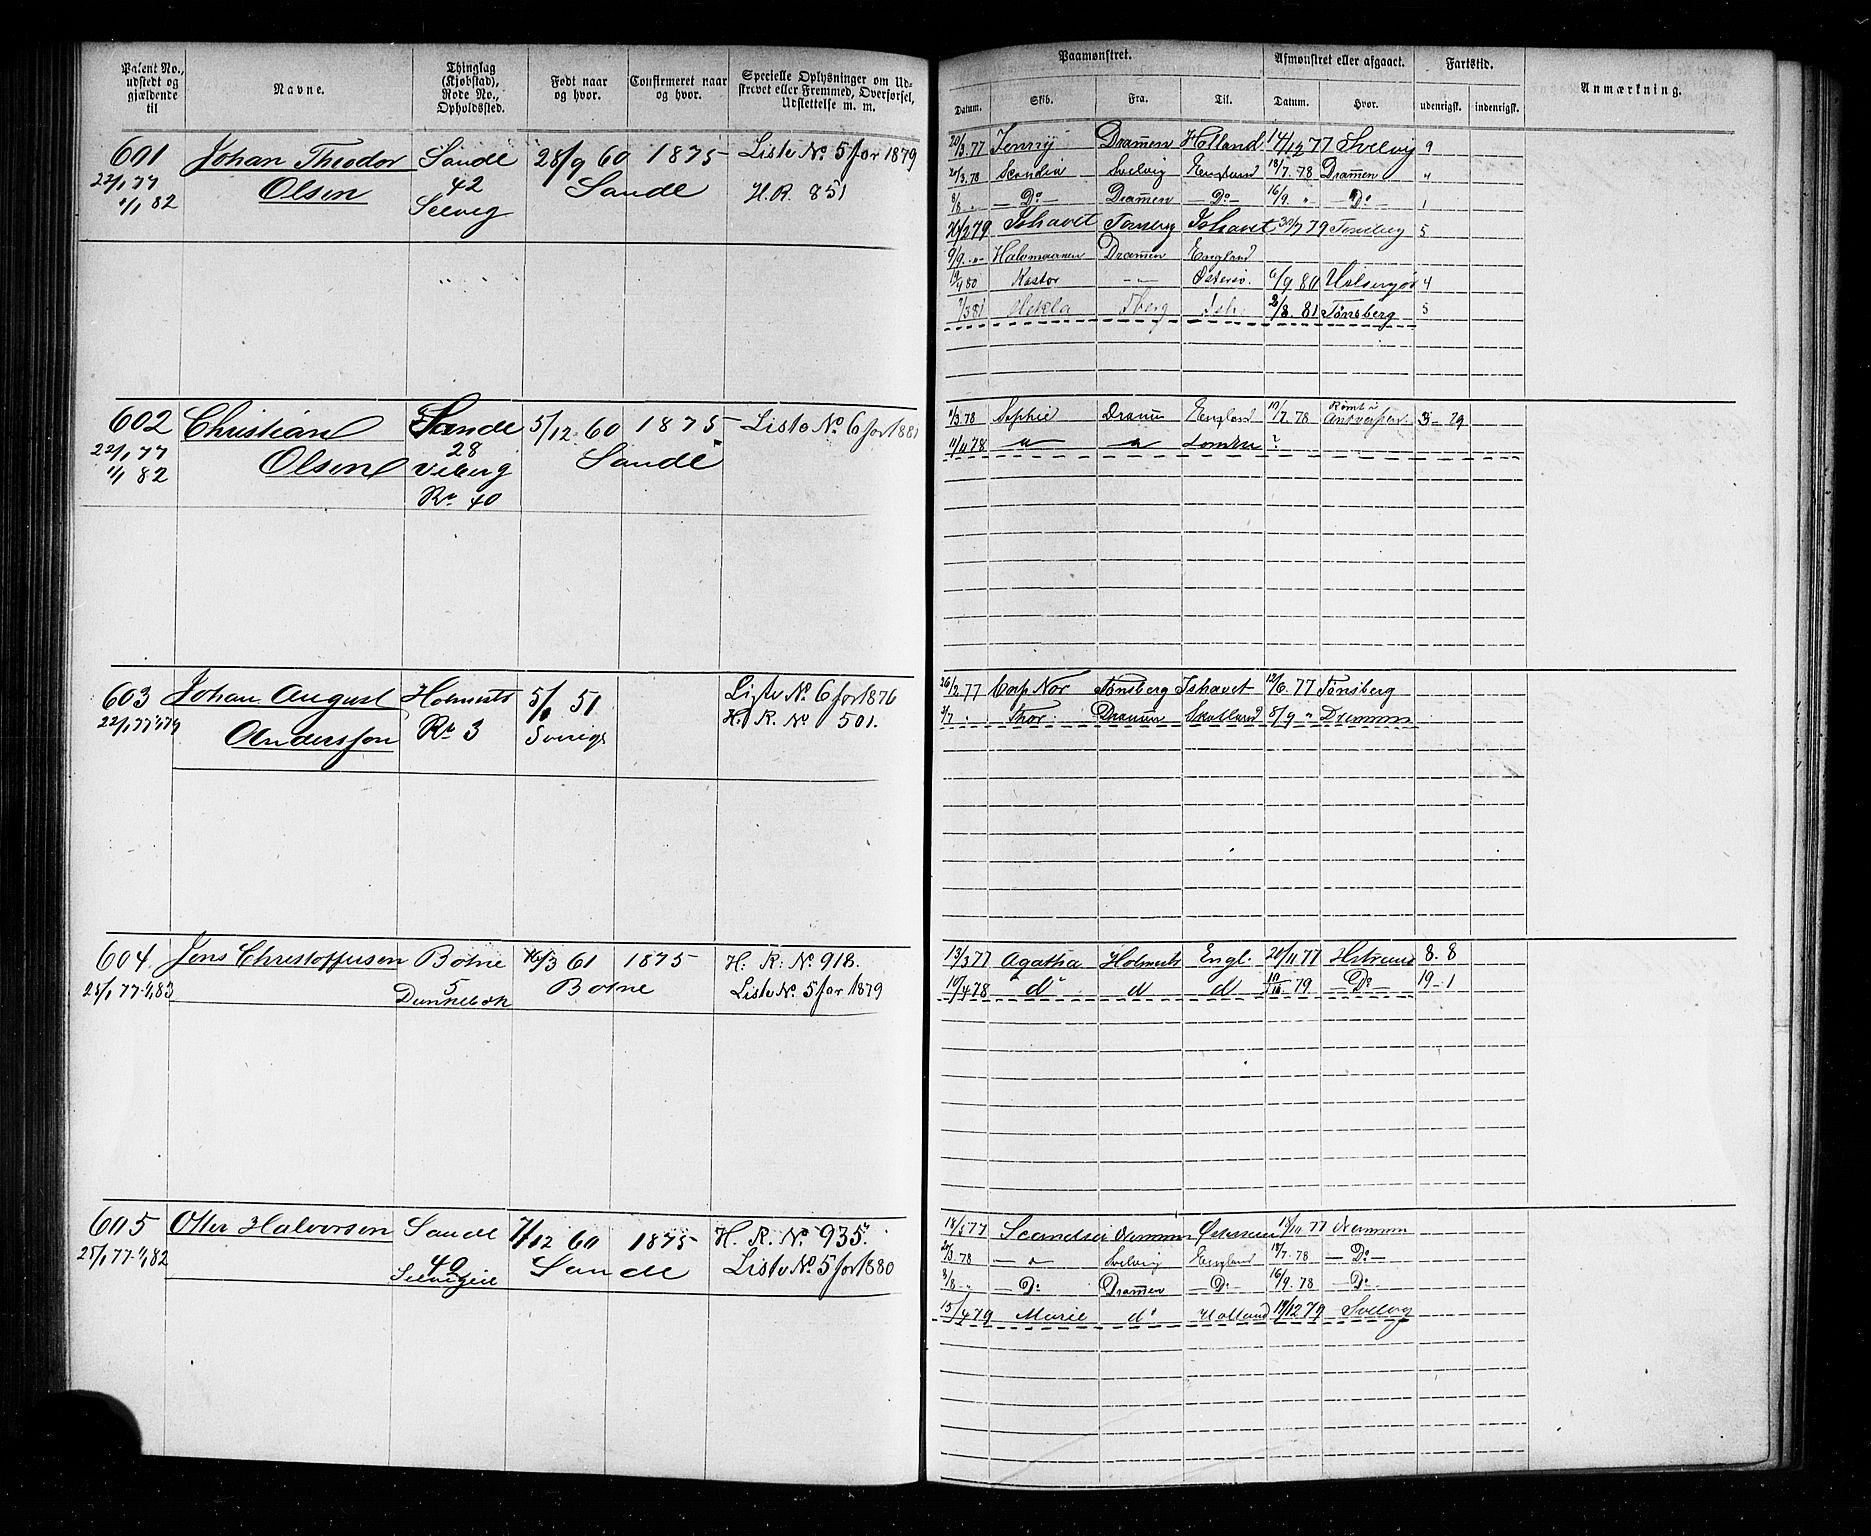 Patent No., udstedt og gjældende til
Navne.
Thinglag (Kjøbstad), Rode No., Opholdssted.
Født naar og hvor.
Confirmeret naar og hvor.
Specielle Oplysninger om Udskrevet eller Fremmed, Overførsel, Udslettelse m. m.
Paamønstret.
Afmønstret eller afgaaet.
Fartstid.
Anmærkning.
Datum. Skib. Fra. Til. Datum. Hvor. udenrigsk. indenrigsk.
601 Johan Theodor Sande 28/9 60 1875 Liste No. 5 for 1879
22/1 77 Olsen 42 Sande H. R. 851
1/1 82 Selvig
20/3 77 Jenny Dramen Holland 14/12 77 Svelvig 9
20/3 78 Scandia Svelvig England 18/7. 78 Dramen "
8/8 " — Do — Dramen — Do — 16/9. " — Do 1
20/2 79 Ishavet Tonsberg Ishavet 30/7 79 Tonsberg 5
9/9. " Halvmaanen Dramen England
19/4 80 Kastor — " — Østersø. 6/9 80 4
7/3 81 Hekla Tberg Ish. 2/8. 81 Tønsberg 5
602 Christian Sande 5/12. 60 1875 Liste No. 6 for 1881
22/1 77 Olsen 28 Sande
1/1 82 Viberg
Ro. 40
1/3. 78 Sophie Dramn England 10/7. 78 Rømt i Antwerpen. 3 - 29
11/11 78 " " London ?
603 Johan August Holmests 5/8 51 Liste No. 6 for 1876
22/1 77 1/1 79 Andersson Ro 3 Sverige H. R. No 501.
26/2 77 Carp. Nor Tønsberg Ishavet 12/6. 77 Tønsberg
3/7 " Thor. Dramen Skotland 8/9 " Drammen
604. Jens Christoffersen Botne 16/3 61 1875 H. R. No. 918.
25/1 77 - 1/1 83 5 Botne Liste No. 5 for 1879
Dunkebek
13/3 77 Agatha Holmests Engl. 20/11 77 Hstrand 8. 8
10/4 78 do d d 10/10 - 79 — Do — 19 - 1
605 Otter Halvorsen Sande 7/12 60 1875 H. R. No. 935.
25/1 77 - 1/1 82 40 Sande Liste No. 5 for 1880
Selvigeie
18/5 77 Scandia Drammen Østersøen 13/10 77 Drammen
20/3. 78 — " Svelvig England 18/7. 78 — Do —
8/8 " — Do — Dramen — Do — 16/9. 78 — Do —
15/4 79 Marie do Holland 19/12 79 Svelvig